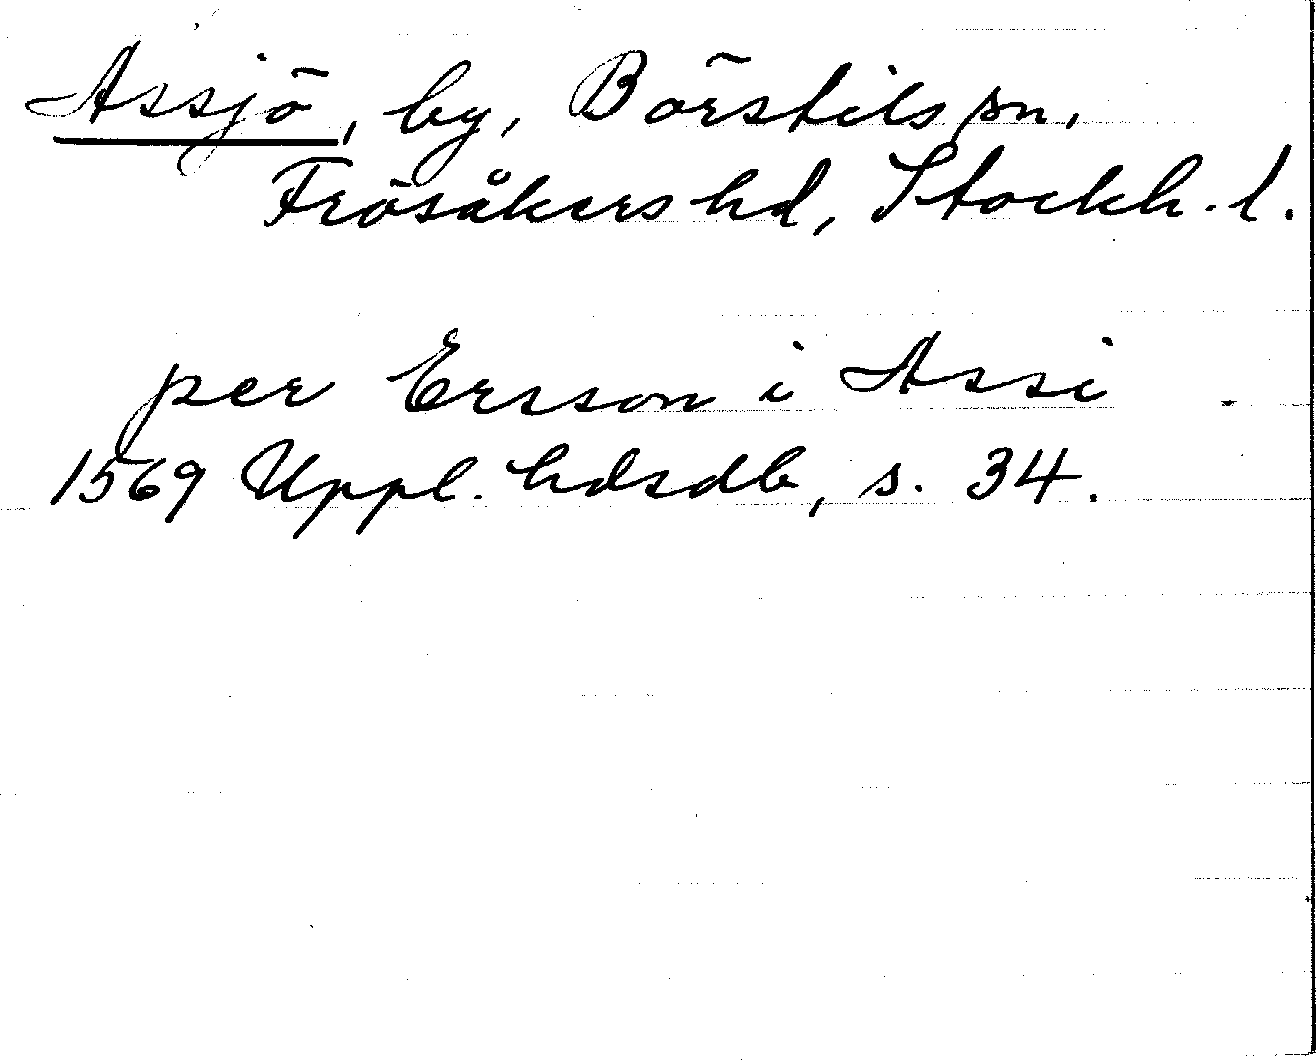 Assjö, by, Börstils sn,
Frösåkers hd, Stockh. l.
per Ersson i Assi
1569 Uppl. hdsdb, s. 34.